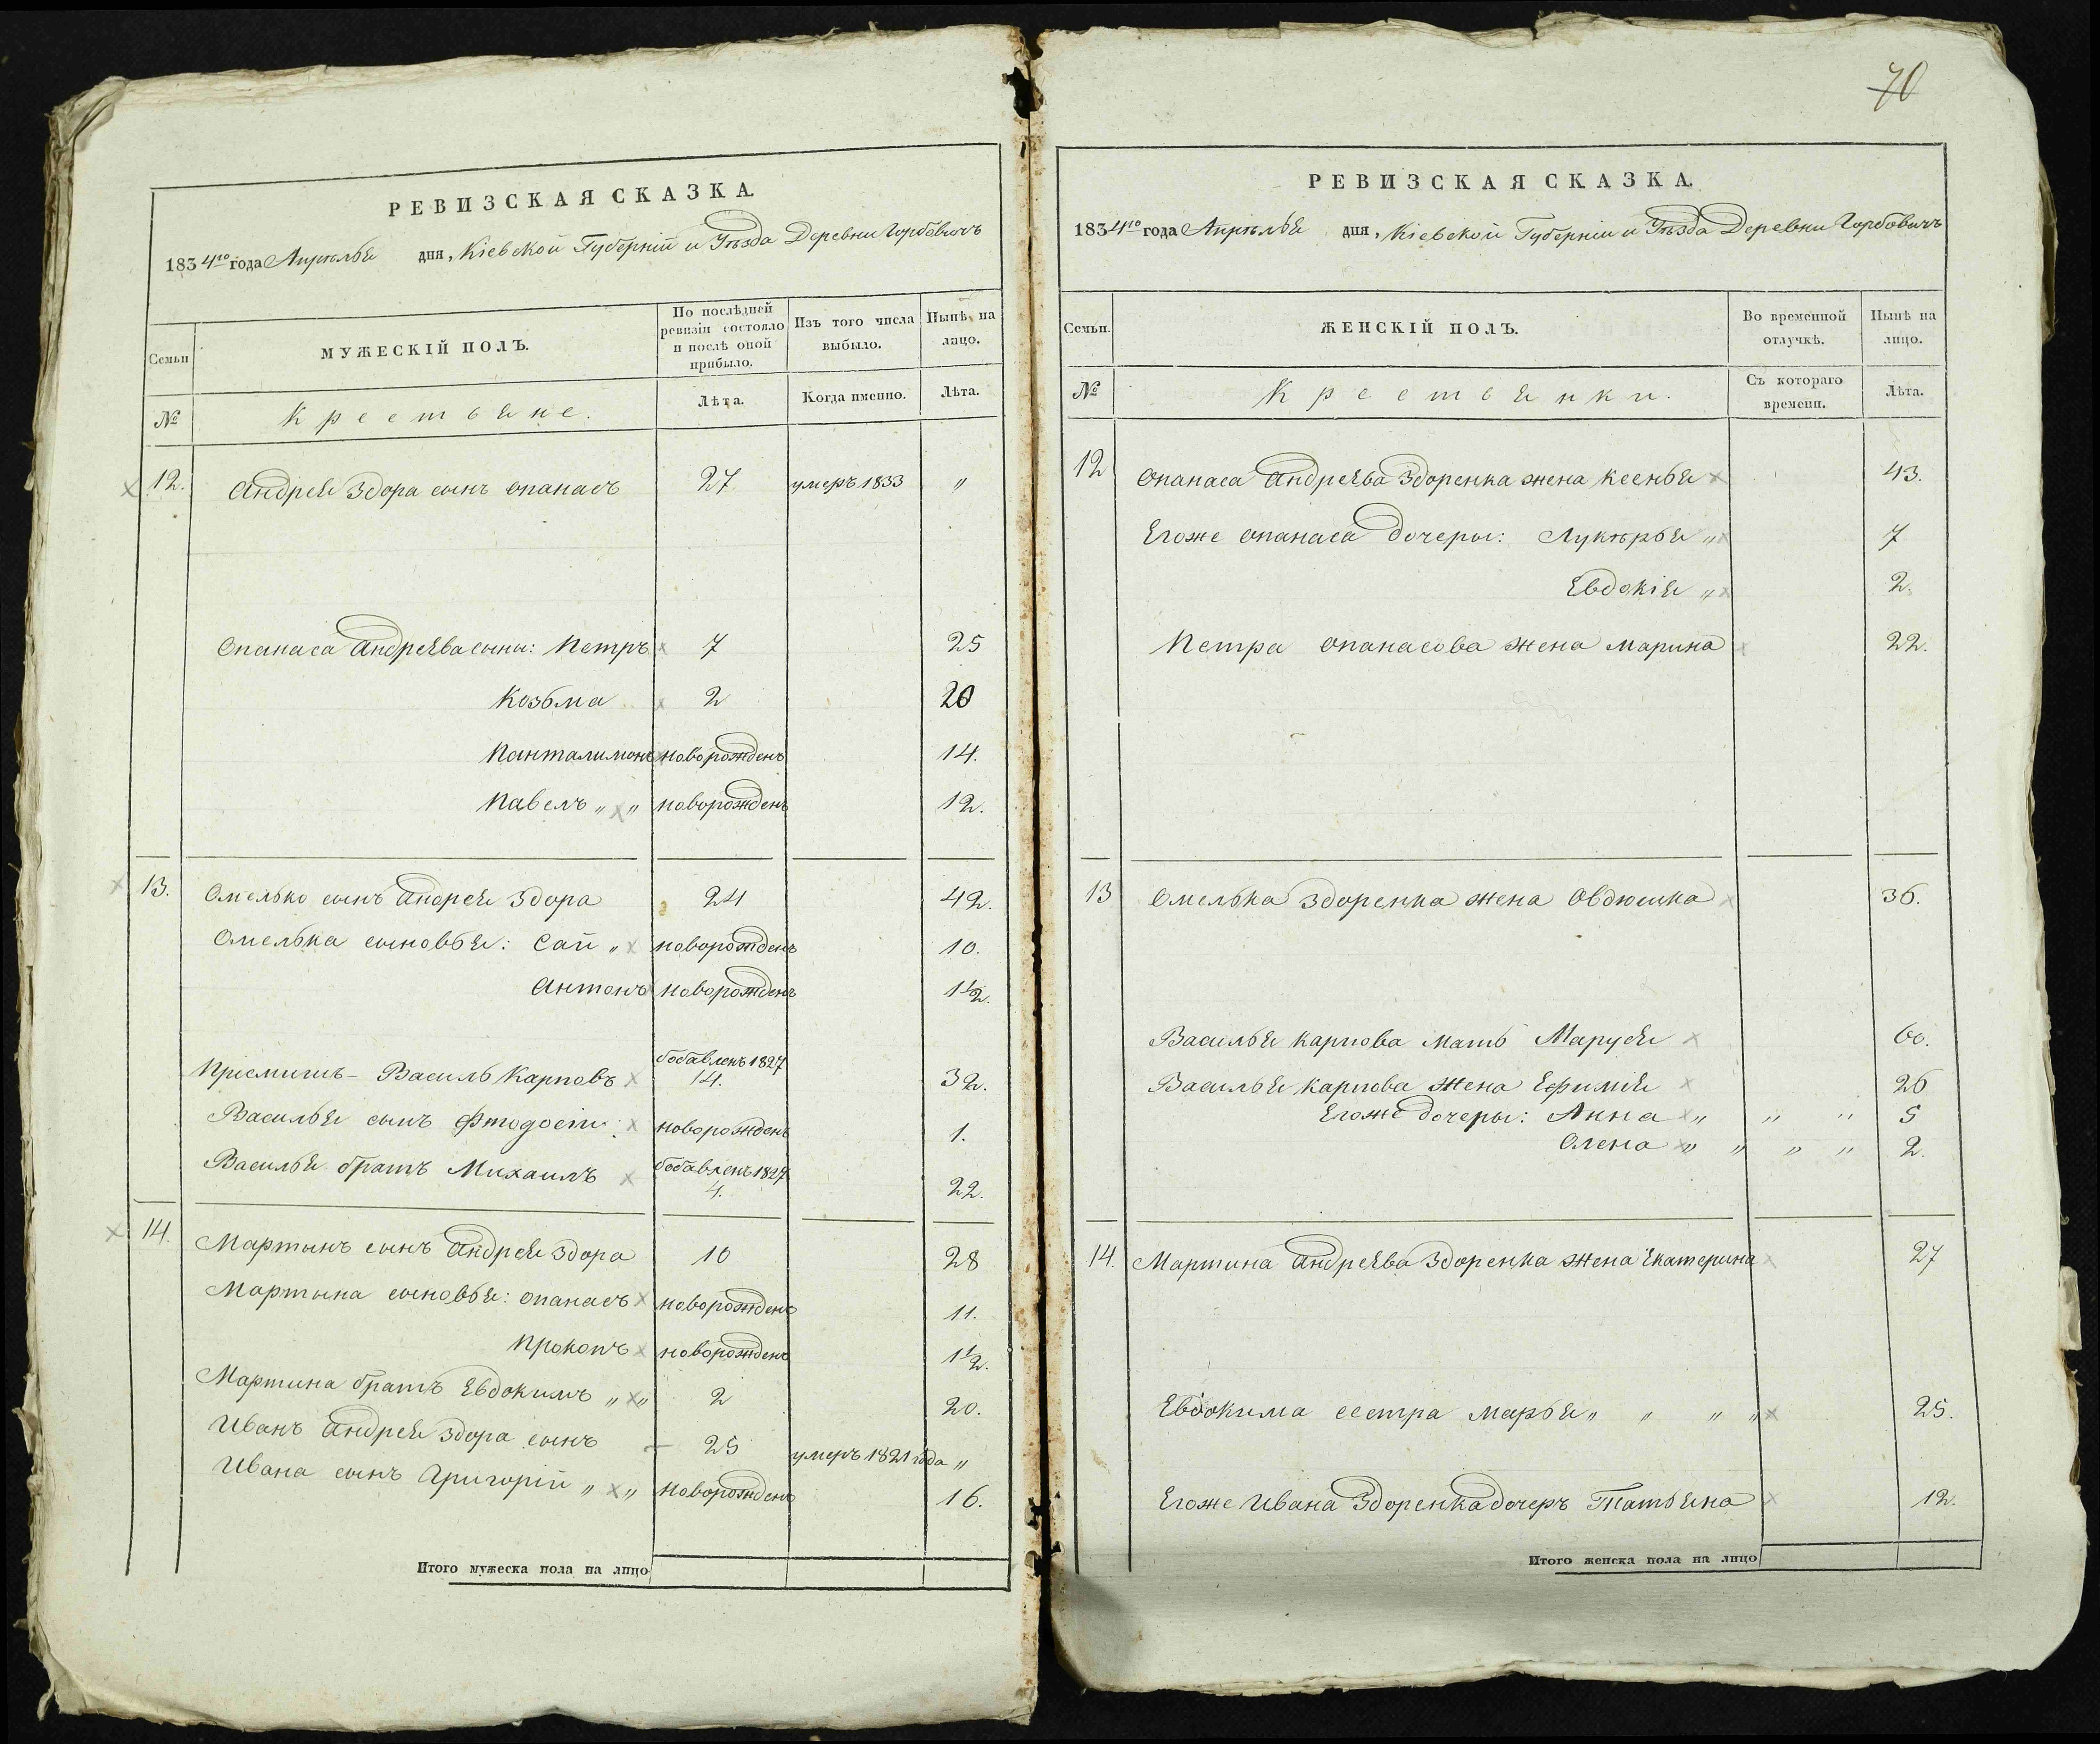 70
РЕВИЗСКАЯ СКАЗКА.
1834го года Апрѣля дня, Кіевской Губерніи и Уѣзда Деревни Горбовичъ
Семьи
МУЖЕСКІЙ ПОЛЪ.
По послѣдней ревизіи состояло и послѣ оной прибыло.
Изъ того числа выбыло.
Нынѣ на лицо.
№
Крестьяне.
Лѣта.
Когда именно.
Лѣта.
12. Андрея Здора сынъ Опанасъ 27 умеръ 1833 „
Опанаса Андреева сыны: Петръ 7 25
Козьма 2 20
Панталимонъ новорожденъ 14.
Павелъ „ „ новорожденъ 12.
13. Омелько сынъ Андрея Здора 24 42.
Омелька сыновья: Сай „ новорожденъ 10.
Антонъ новорожденъ 1½.
Пріемишъ – Василь Карповъ добавленъ 1827 14. 32.
Василья сынъ новорожденъ 1.
Василья братъ Михаилъ добавленъ 1827 4. 22.
14. Мартынъ сынъ Андрея Здора 10 28
Мартына сыновья: Опанасъ новорожденъ 11.
Прокопъ новорожденъ 1½.
Мартина братъ Евдокимъ „ „ 2 20.
Иванъ Андрея Здора сынъ – 25 умеръ 1821 года „
Ивана сынъ Григорій „ „ новорожденъ 16.
Итого мужеска пола на лицо
РЕВИЗСКАЯ СКАЗКА.
1834го года Апрѣля дня, Кіевской Губерніи и Уѣзда Деревни Горбовичъ
Семьи.
ЖЕНСКІЙ ПОЛЪ.
Во временной отлучкѣ.
Нынѣ на лицо.
№
Крестьянки.
Съ котораго времени.
Лѣта.
12 Опанаса Андреева Здоренка жена Ксенья 43.
Егоже Опанаса дочеры: Лукѣрья „ 7
Евдокія „ 2.
Петра Опанасова жена Марина 22.
13 Омелька Здоренка жена Овдюшка 36.
Василья Карпова мать Маруся 60.
Василья Карпова жена Ефимія 26
Егоже дочеры: Анна „ „ „ 5
Олена „ „ „ „ 2.
14. Мартина Андреева Здоренка жена Екатерина 27
Евдокима сестра Марья „ „ „ „ 25.
Егоже Ивана Здоренка дочеръ Татьяна 12.
Итого женска пола на лицо